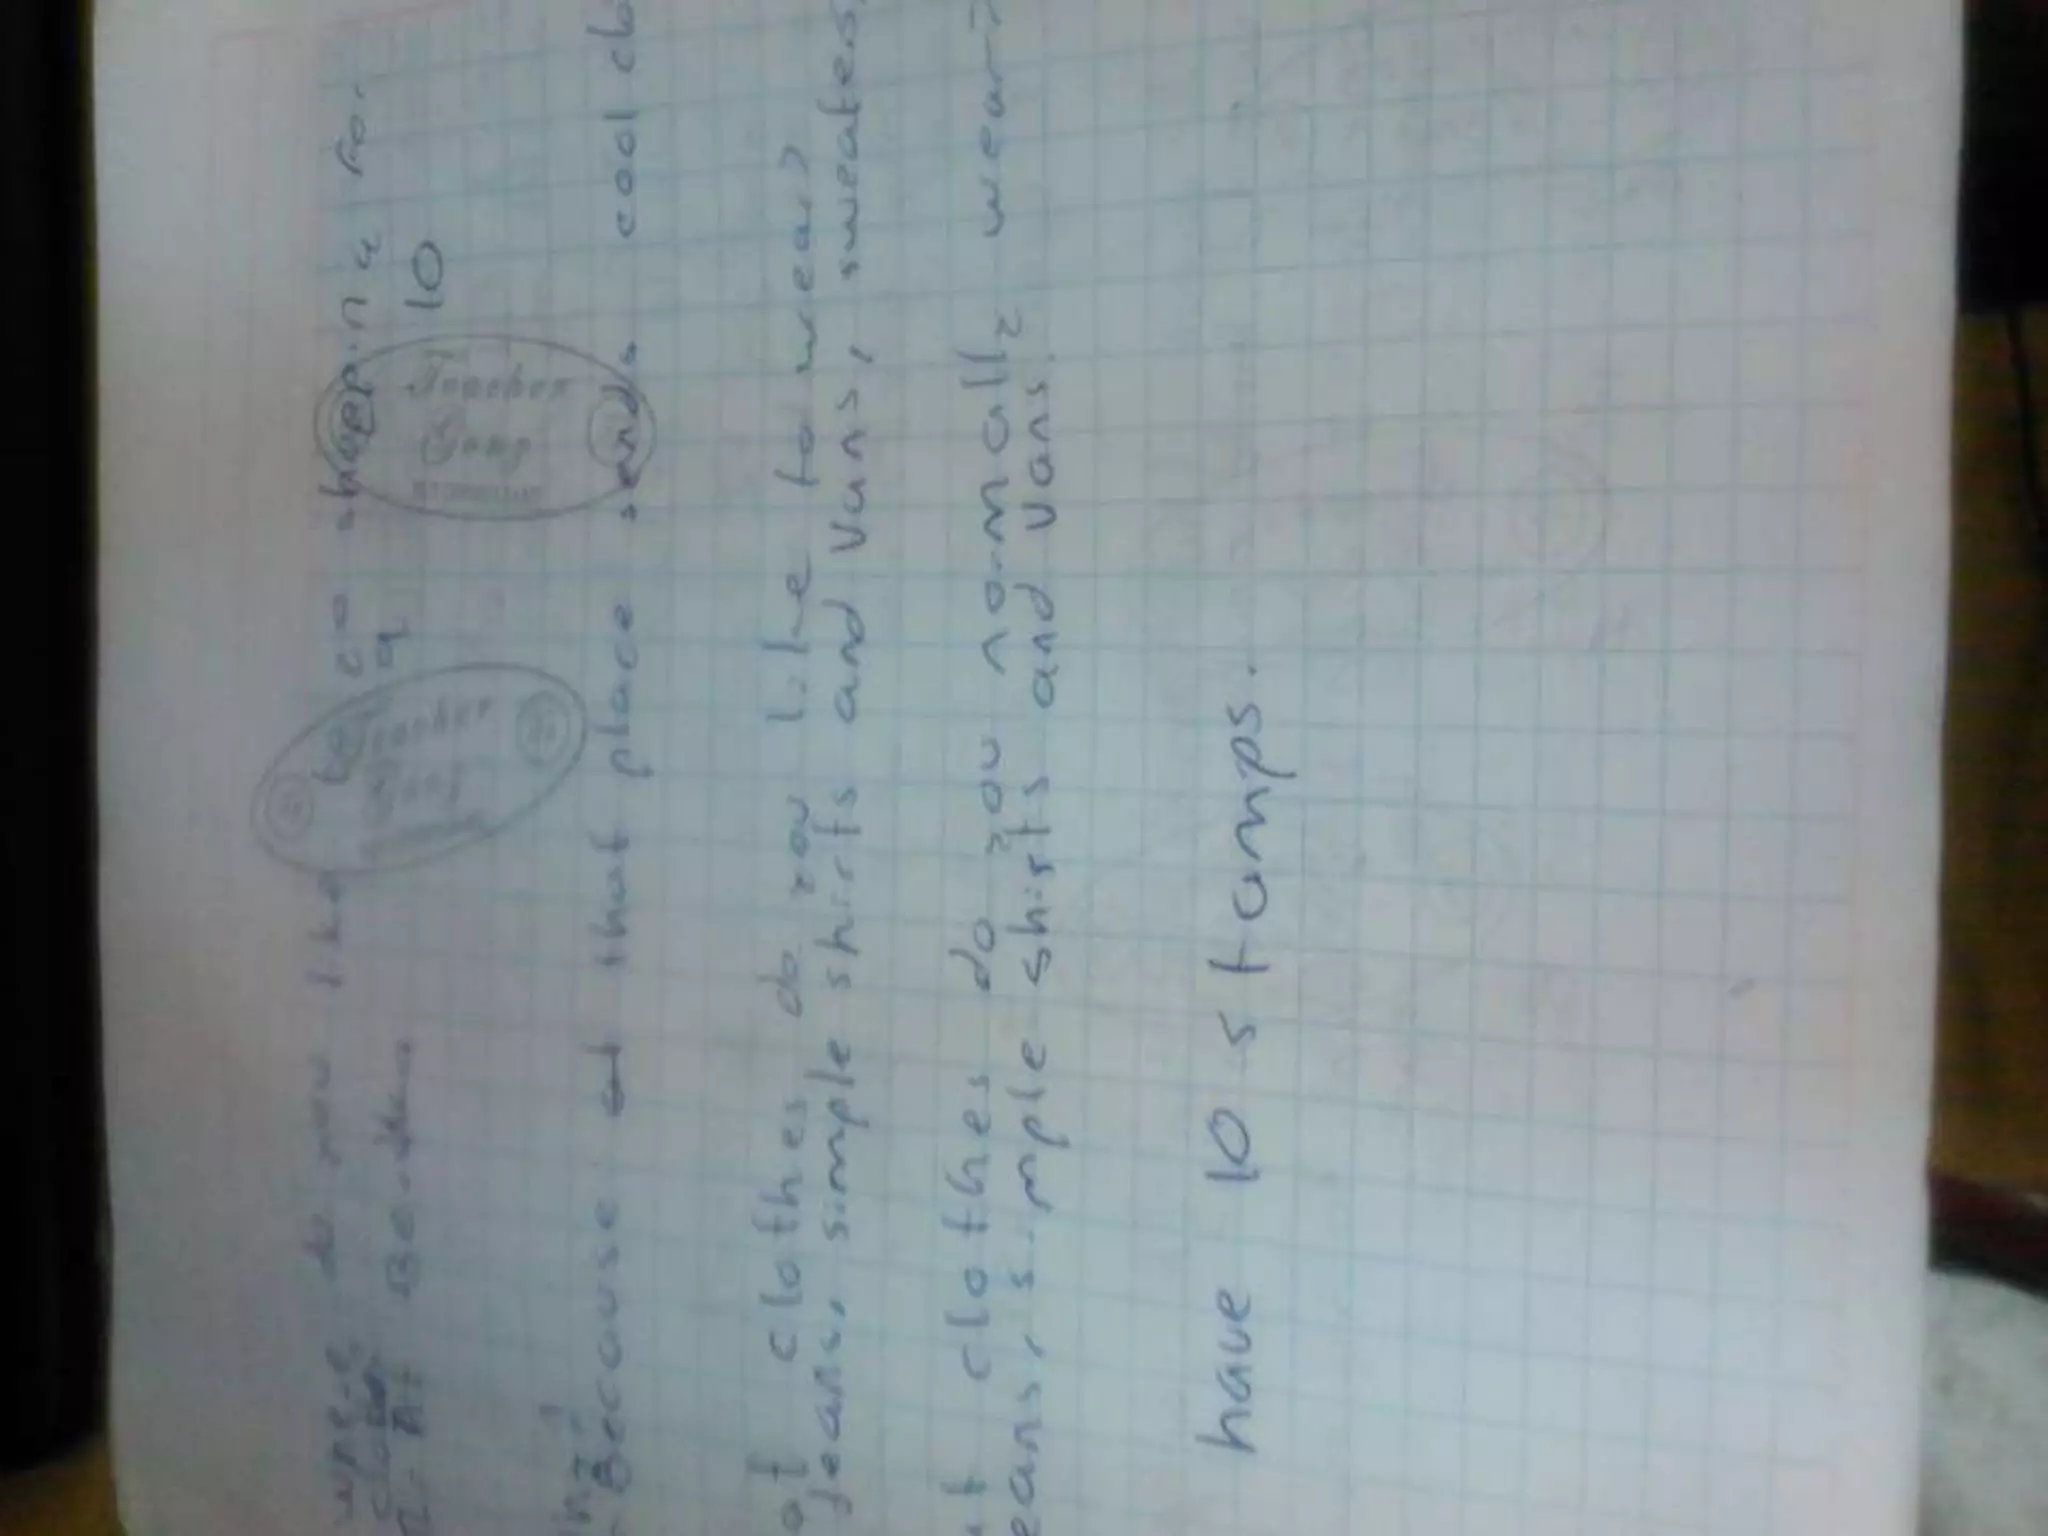 where do you like to go shopping for
clothes?
At Bershka.
9
10
Teacher
Teacher
Because at that place sends cool clo
at clothes do you like to wear?
jeans, simple shirts and vans, sweaters,
at clothes do you normally weari
eans, simple shirts and vans.
have 10 stamps.